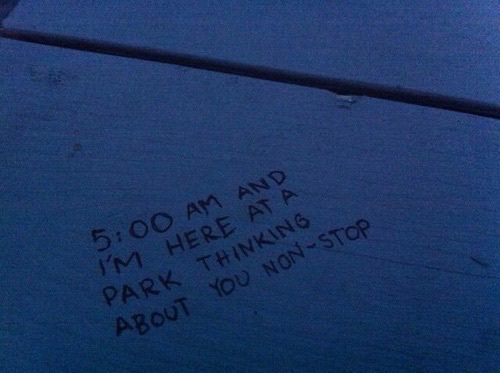 5:00 AM AND
I'M HERE AT A
PARK THINKING
ABOUT YOU NON-STOP